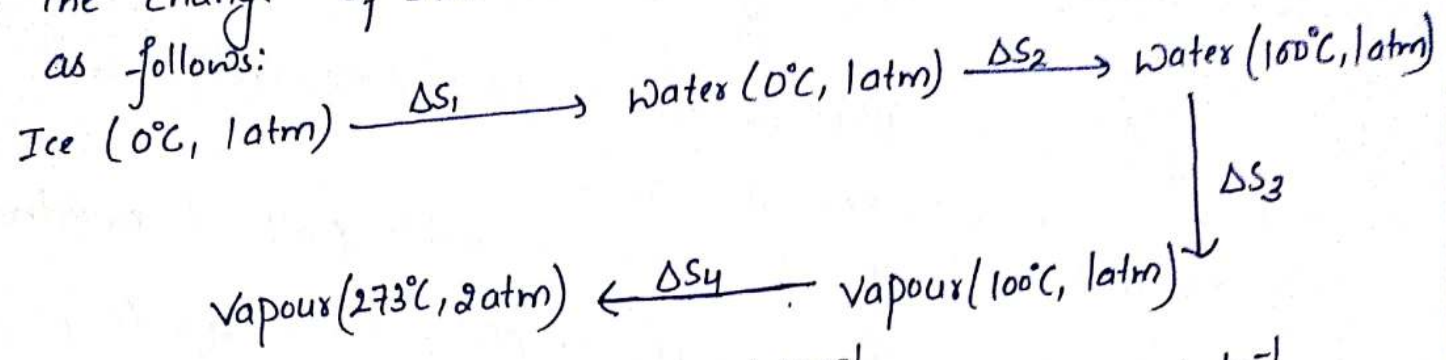 as follows:
Ice (0°C, 1atm) ΔS₁ → Water (0°C, 1atm) ΔS₂ → Water (100°C, 1atm)
ΔS₃
Vapour (273°C, 2atm) ← ΔS₄ Vapour (100°C, 1atm)